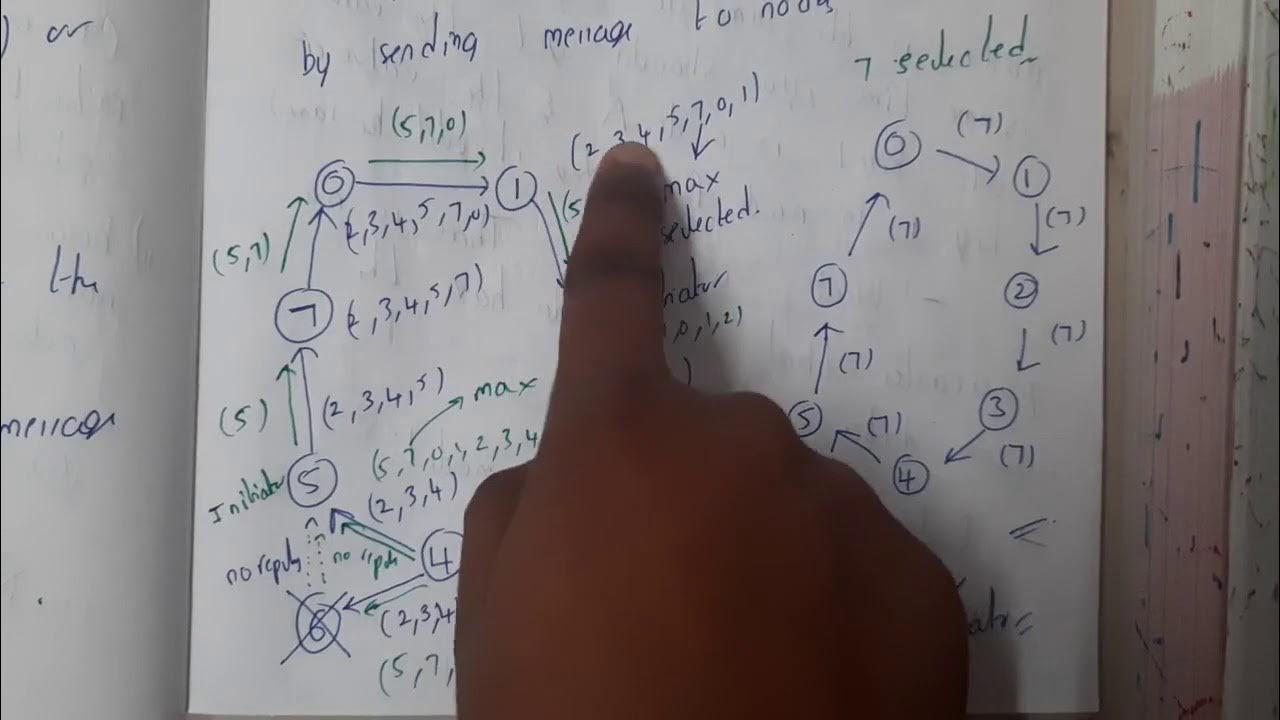 ) or
the
message
by sending message to node
7 selected
(5,7,0)
(2,3,4,5,7,0,1)
max
selected.
0
1
(2,3,4,5,7,0)
(5
(5,7)
7
(2,3,4,5,7)
0,1,2)
)
(5)
(2,3,4,5)
max
(5,7,0,1,2,3,4
Initiator
5
(2,3,4)
no reply
no reply
4
6
(2,3,4
(5,7,
0
(7)
1
(7)
(7)
7
2
(7)
(7)
5
(7)
3
(7)
4